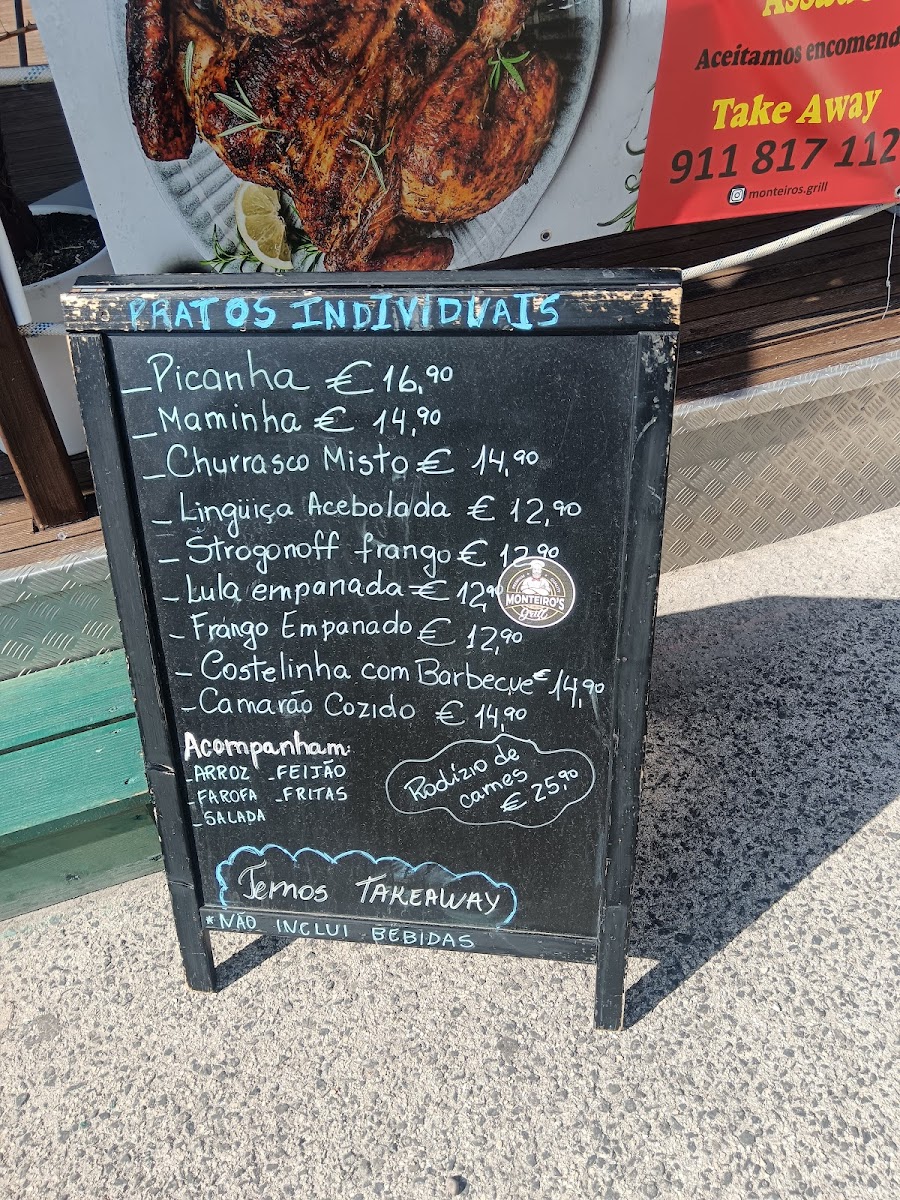 Aceitamos encomend
Take Away
911 817 112
monteiros.grill
PRATOS INDIVIDUAIS
_Picanha € 16,90
_Maminha € 14,90
_Churrasco Misto € 14,90
_Lingüiça Acebolada € 12,90
_Strogonoff frango € 12,90
_Lula empanada € 12,90
_Frango Empanado € 12,90
_Costelinha com Barbecue € 14,90
_Camarão Cozido € 14,90
MONTEIRO'S
grill
Acompanham:
_ARROZ _FEIJÃO
_FAROFA _FRITAS
_SALADA
Rodízio de
carnes
€ 25,90
Temos TAKEAWAY
*NÃO INCLUI BEBIDAS